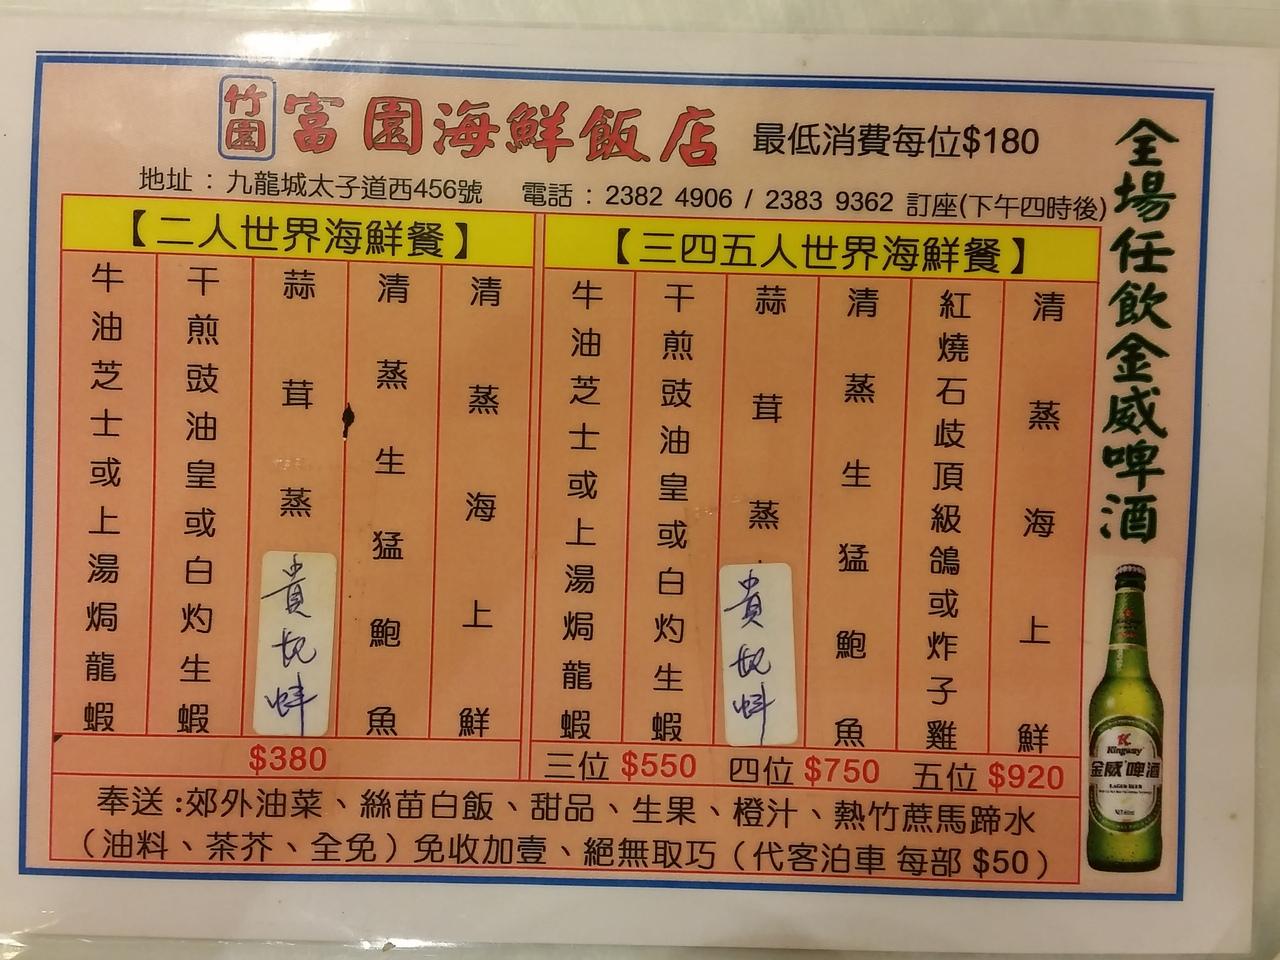 竹園 富園海鮮飯店 最低消費每位$180
地址：九龍城太子道西456號 電話：2382 4906 / 2383 9362 訂座(下午四時後)
全場任飲金威啤酒
【二人世界海鮮餐】
清蒸海上鮮
清蒸生猛鮑魚
蒜茸蒸貴妃蚌
干煎豉油皇或白灼生蝦
牛油芝士或上湯焗龍蝦
$380
【三四五人世界海鮮餐】
清蒸海上鮮
紅燒石歧頂級鴿或炸子雞
清蒸生猛鮑魚
蒜茸蒸貴妃蚌
干煎豉油皇或白灼生蝦
牛油芝士或上湯焗龍蝦
三位 $550 四位 $750 五位 $920
奉送:郊外油菜、絲苗白飯、甜品、生果、橙汁、熱竹蔗馬蹄水
（油料、茶芥、全免）免收加壹、絕無取巧（代客泊車 每部 $50）
Kingway
金威啤酒
LAGER BEER